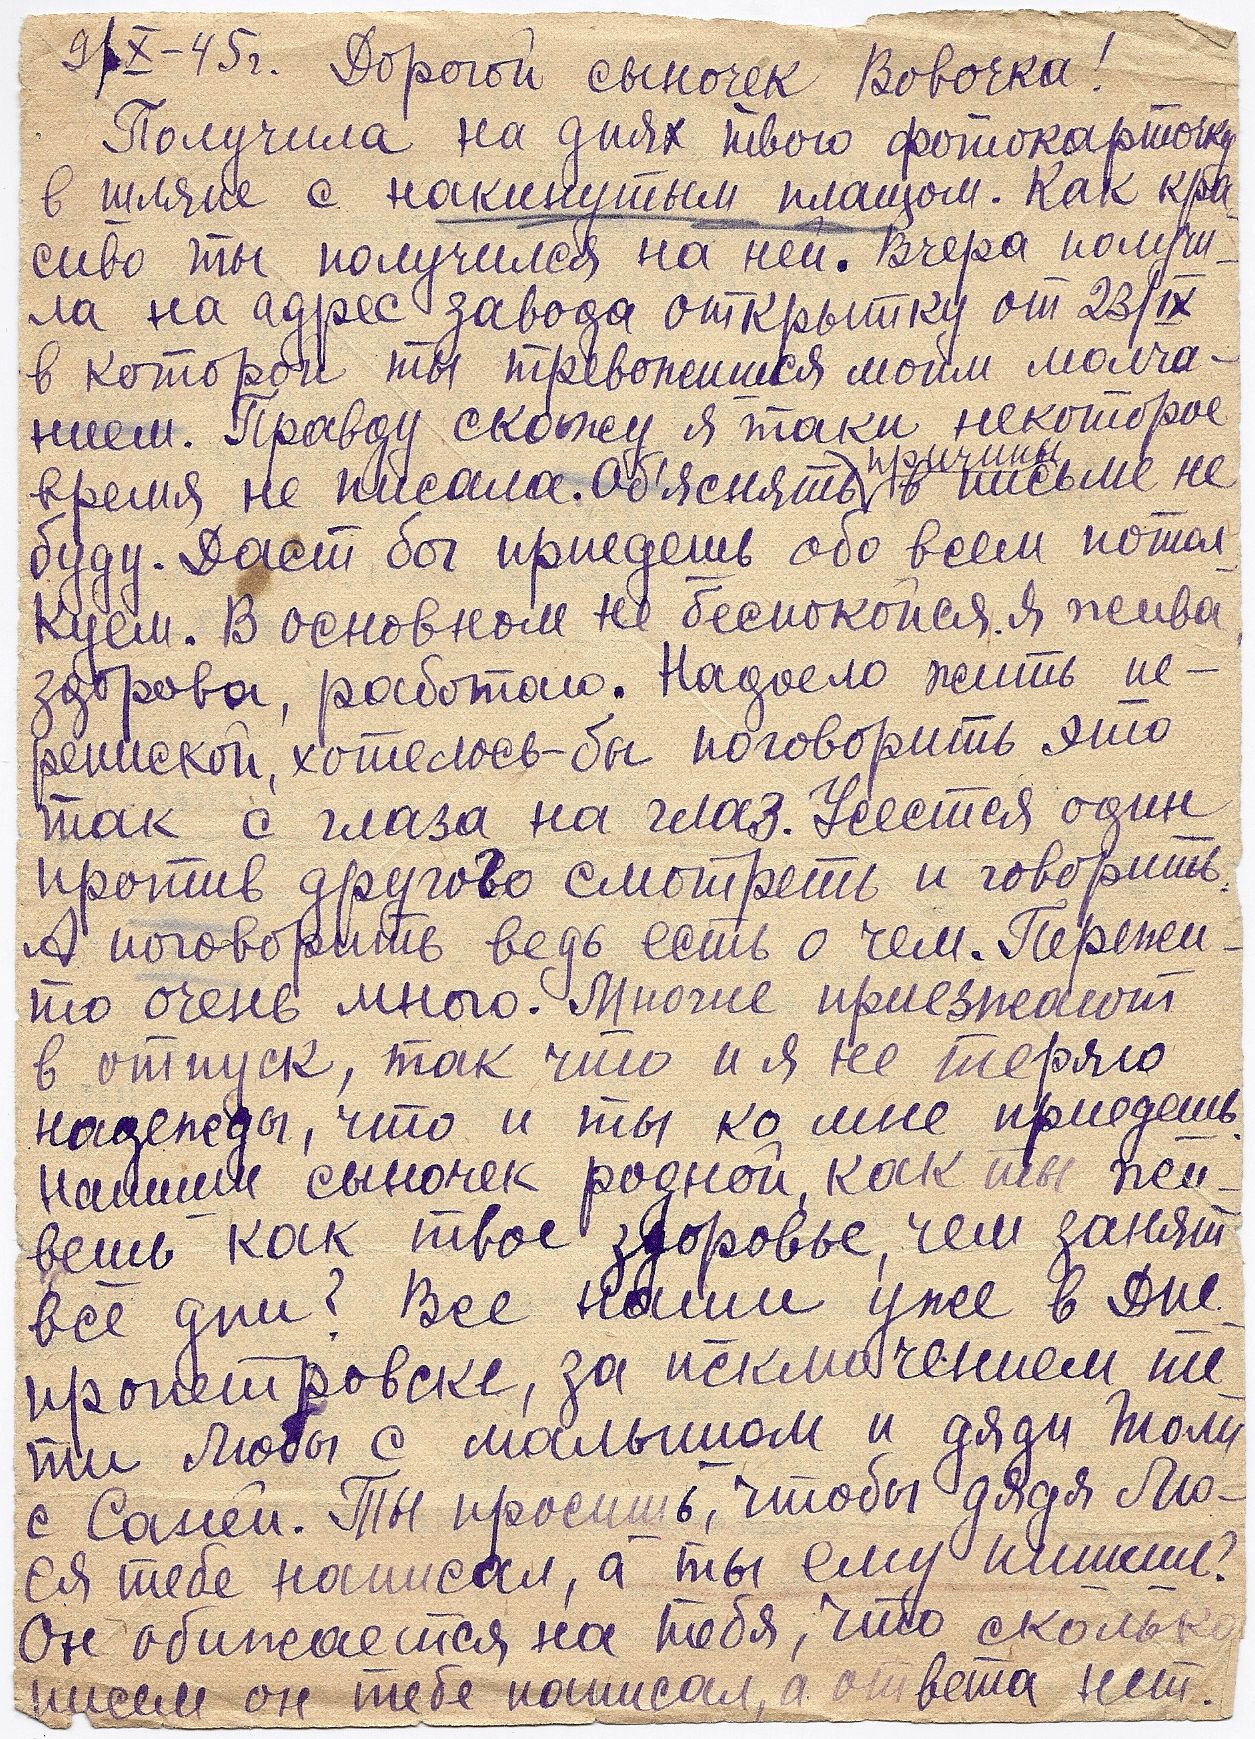 9/X-45г. Дорогой сыночек Вовочка!
Получила на днях твою фотокарточку
в шляпе с накинутым плащом. Как кра-
сиво ты получился на ней. Вчера получи-
ла на адрес завода открытку от 23/IX
в которой ты тревожишся моим молча-
нием. Правду скажу я таки некоторое
время не писала. Об'яснять причины в письме не
буду. Даст бог приедешь обо всем потол-
куем. В основном не беспокойся. Я жива,
здорова, работаю. Надоело жить пе-
репиской, хотелось-бы поговорить это
так с глаза на глаз. Усестся один
против другого смотреть и говорить.
А поговорить ведь есть о чем. Пережи-
то очень много. Многие приезжают
в отпуск, так что и я не теряю
надежды, что и ты ко мне приедешь.
Напиши сыночек родной, как ты жи-
вешь как твое здоровье, чем занят
все дни? Все наши уже в Дне-
пропетровске, за исключением те-
ти Любы с малышом и дяди Толи
с Саней. Ты просишь, чтобы дядя Лю-
ся тебе написал, а ты ему пишеш?
Он обижается на тебя, что сколько
писем он тебе написал, а ответа нет.